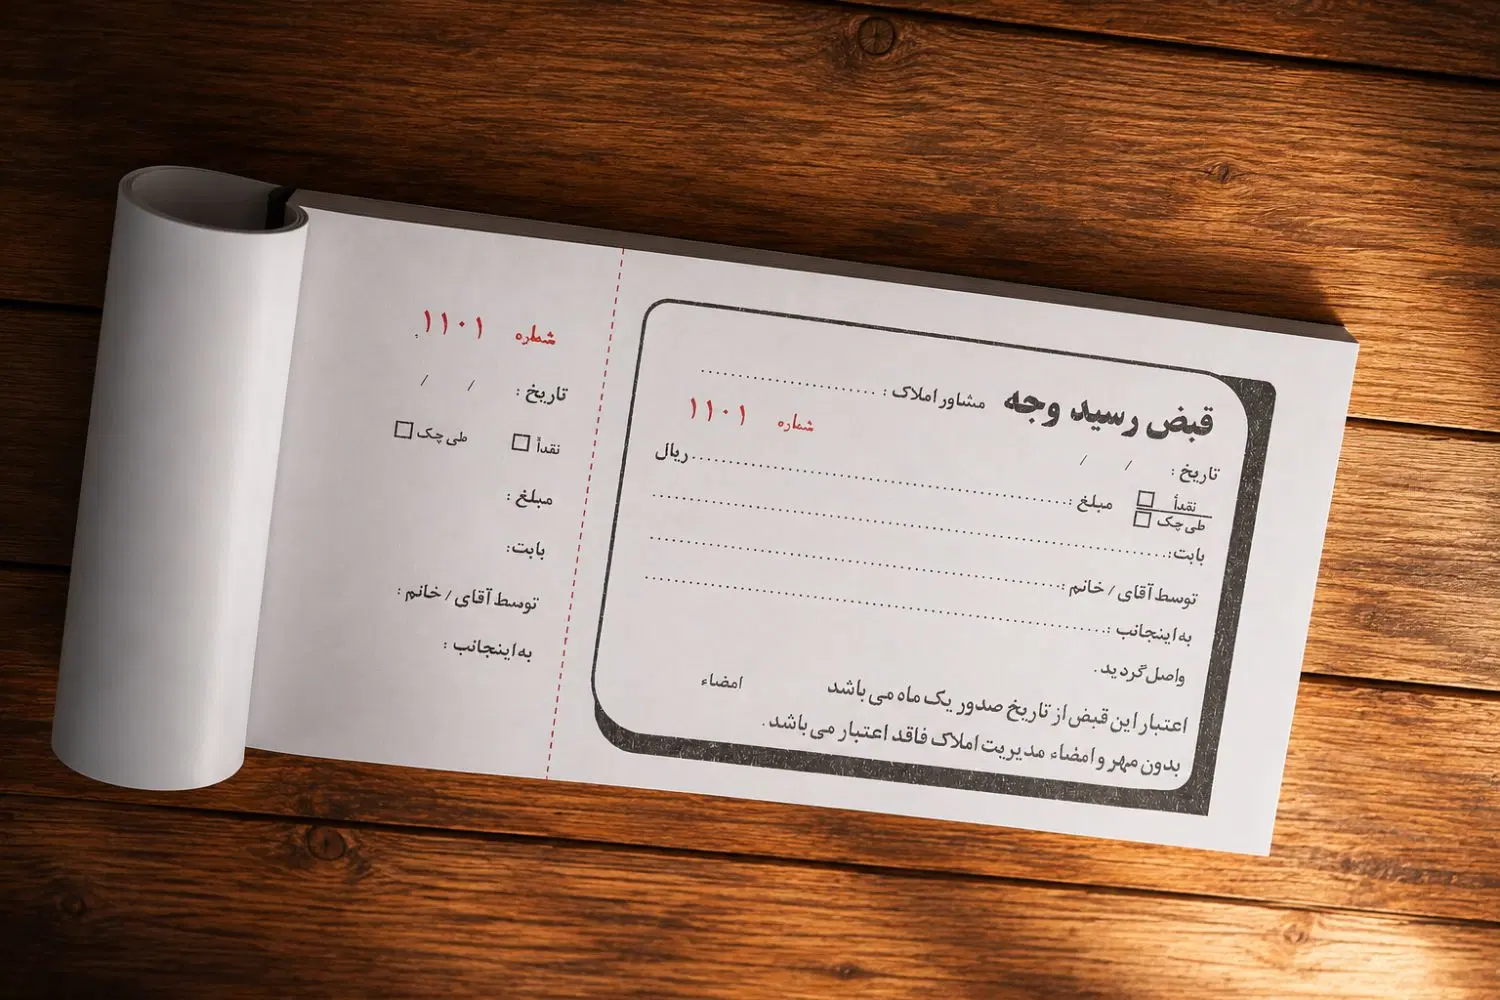 قبض رسید وجه
مشاور املاک : ....................
شماره ۱۱۰۱
تاریخ : / /
نقداً
طی چک
مبلغ : .................... ریال
بابت: ....................
توسط آقای / خانم : ....................
به اینجانب : ....................
واصل گردید .
اعتبار این قبض از تاریخ صدور یک ماه می باشد
امضاء
بدون مهر و امضاء مدیریت املاک فاقد اعتبار می باشد .
شماره ۱۱۰۱
تاریخ : / /
نقداً طی چک
مبلغ :
بابت:
توسط آقای / خانم :
به اینجانب :